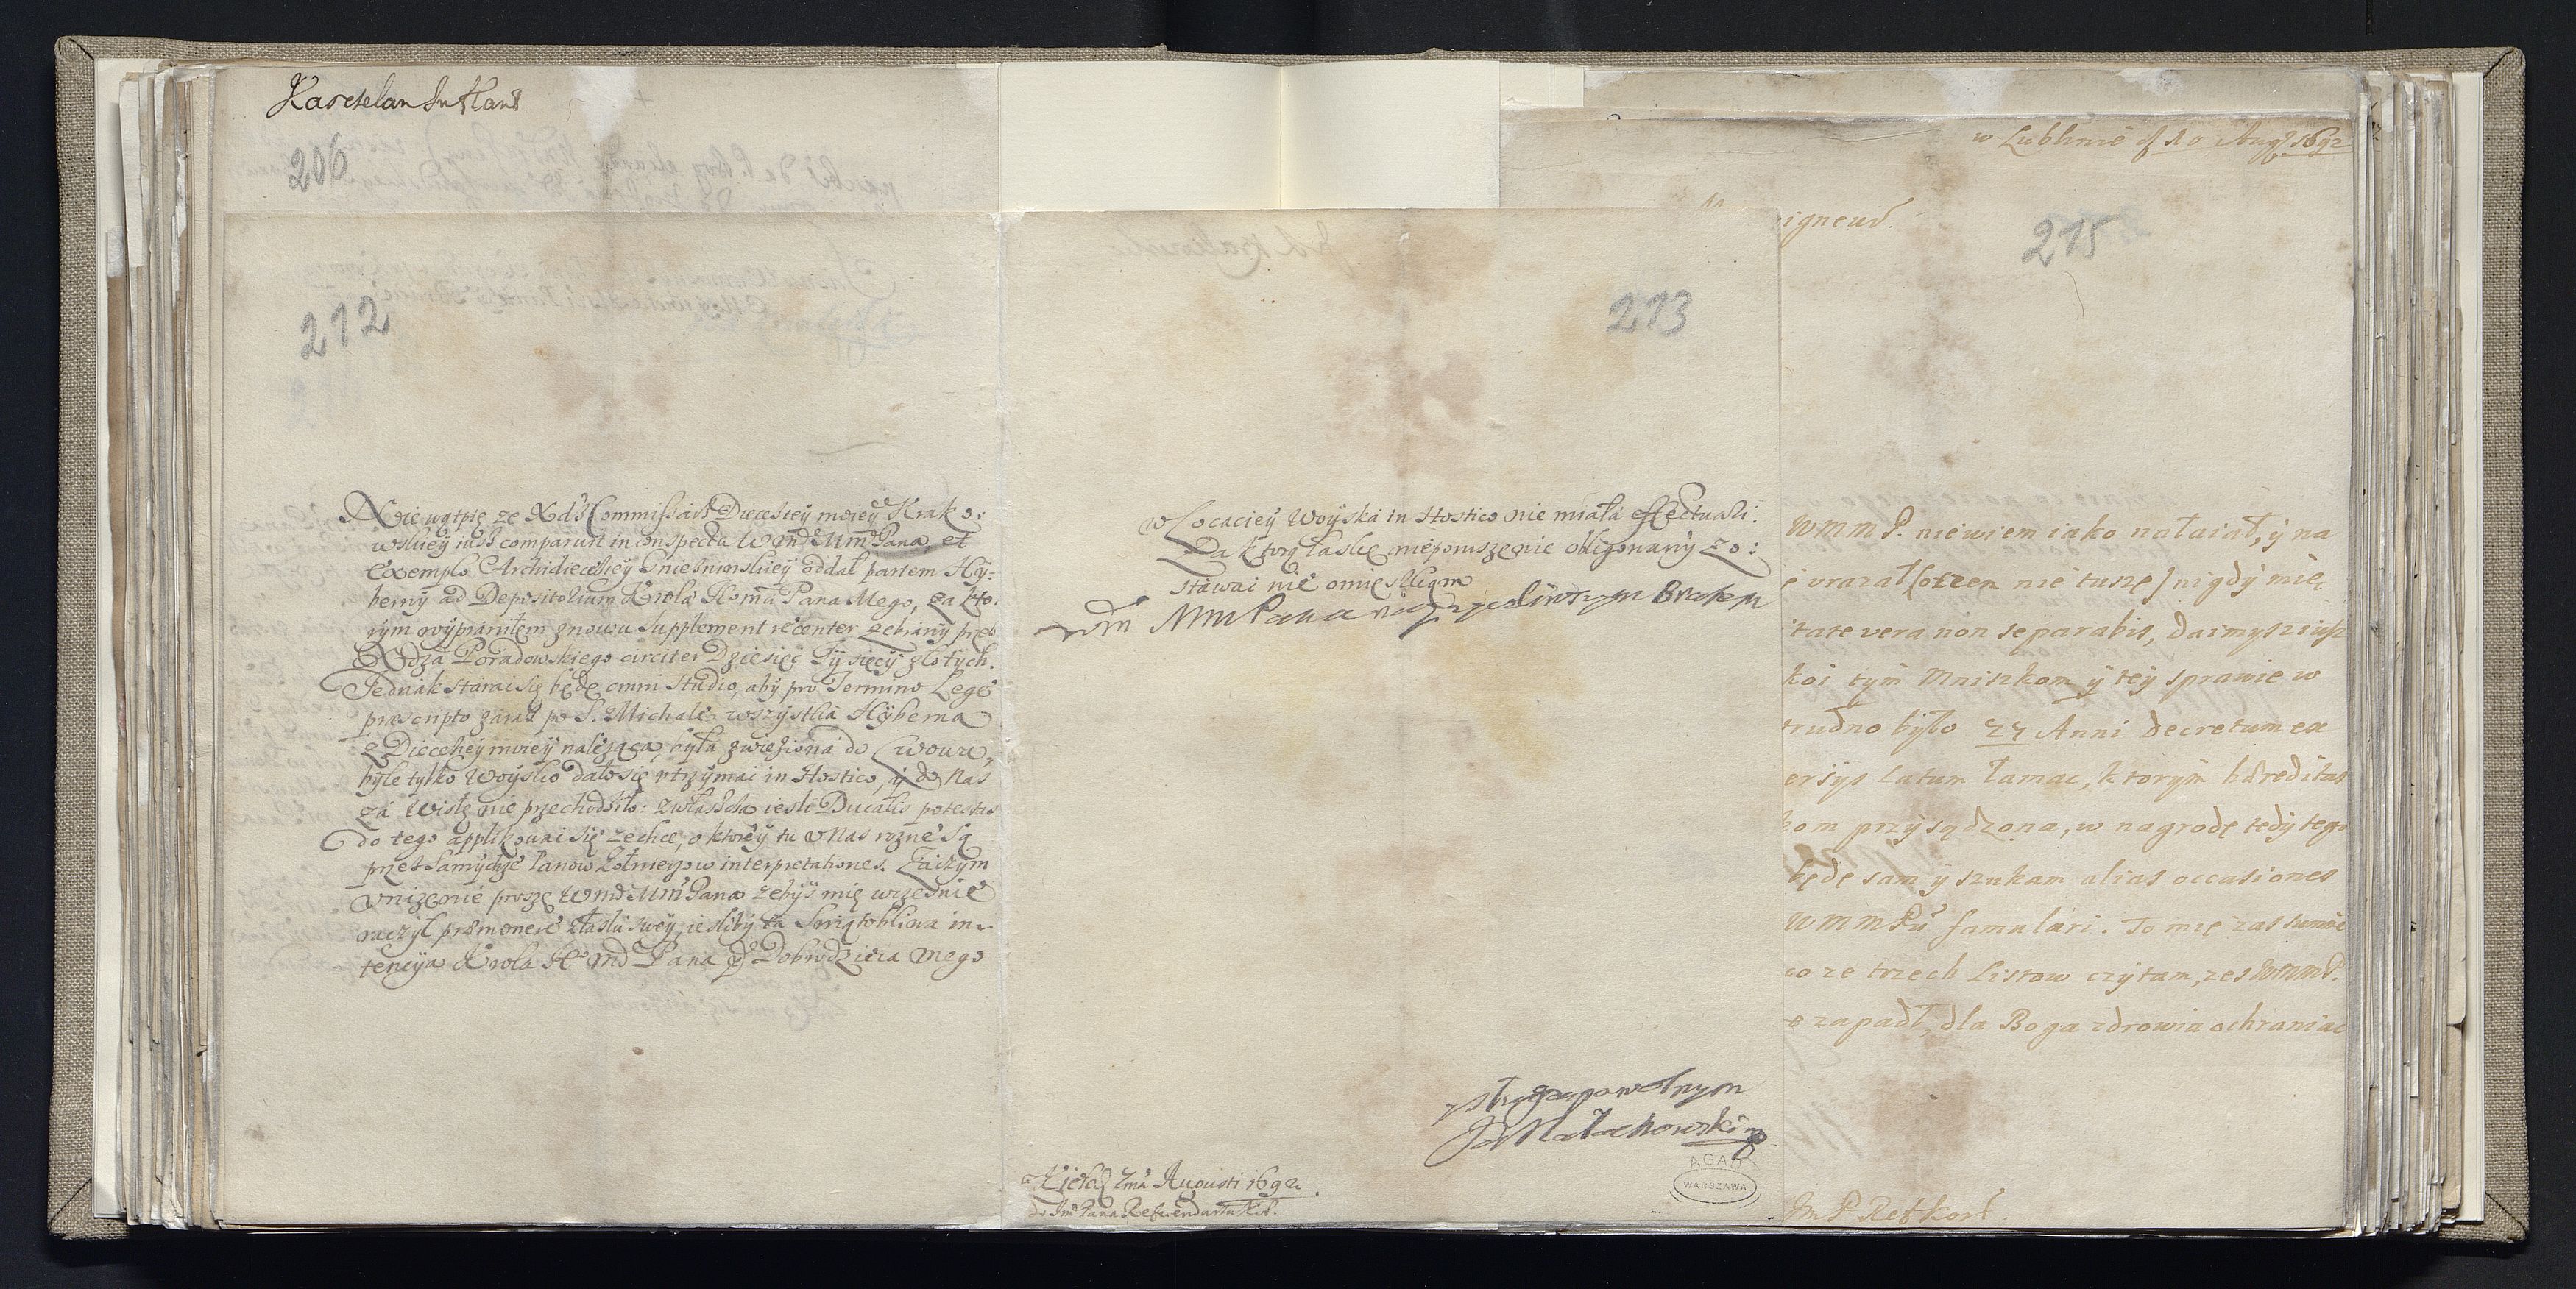 Kasztelan
206
212
Nie wątpię ze Xdz Commissarz Diecesiey moiey Krako:
wskiey iusz comparuit in conspectu WMd MMo Pana, et
exemplo Archidiecesiey Gnieznienskiey oddał partem Hy:
berny ad Depositorium Krola Jo Mci Pana Mego, za kto:
rym wyprawiłem znowu supplement recenter zebrany przez
Xdza Poradowskiego circiter Dziesięć Tysięcy złotych.
Jednak starać się będę omni studio, aby pro Termino Lege
præscripto zaraz po S. Michale wszystka Hyberna
z Diecesiey moiey należąca, była zwieziona do Lwowa,
byle tylko Woysko dało się utrzymać in Hostico, y do Nas
za Wisłę nie przechodziło: zwłaszcza iesli Ducalis potestas
do tego applikować się zechce, o ktorey tu u Nas rozne są
przez samychże Panow Zołnierzow interpretationes. Zaczym
uniżenie proszę WMd MMo Pana żebyś mię wcześnie
raczył præmonere z łaski swey, iesliby ta Swiątobliwa in-
tencya Krola Jo Md Pana y Dobrodzieia mego
213
w Locaciey Woyska in Hostico nie miała effectuari.
Za ktorą łaskę nieporuszenie obligowany zo:
stawać nie omieszkam
WM MM Pana nayzyczliwszym Bratem
y sługą powolnym
Jan Małachowski
w Kielcach 2ma Augusti 1692.
do Jmo Pana Referendarza Kor.
AGAD
WARSZAWA
w Lublinie d 10 Aug 1692
igneur.
215
WMMP. niewiem iako nałaiał, y na
urazał (otzem nie tuszę) nigdy nie
tate vera non separabis, daimysz iusz
koi tym Mniszkom y tey sprawie w
trudno było 24 Anni decretum ex
ersys latum łamac, ktorym hæreditas
kom przysądzona, w nagrodę tedy tego
będę sam y szukam alias occasiones
WMMPu famulari. To mię zas
co ze trzech Listow czytam, zes WMMP.
zapadł, dla Boga zdrowia ochraniac
Jm P Ref Kor.